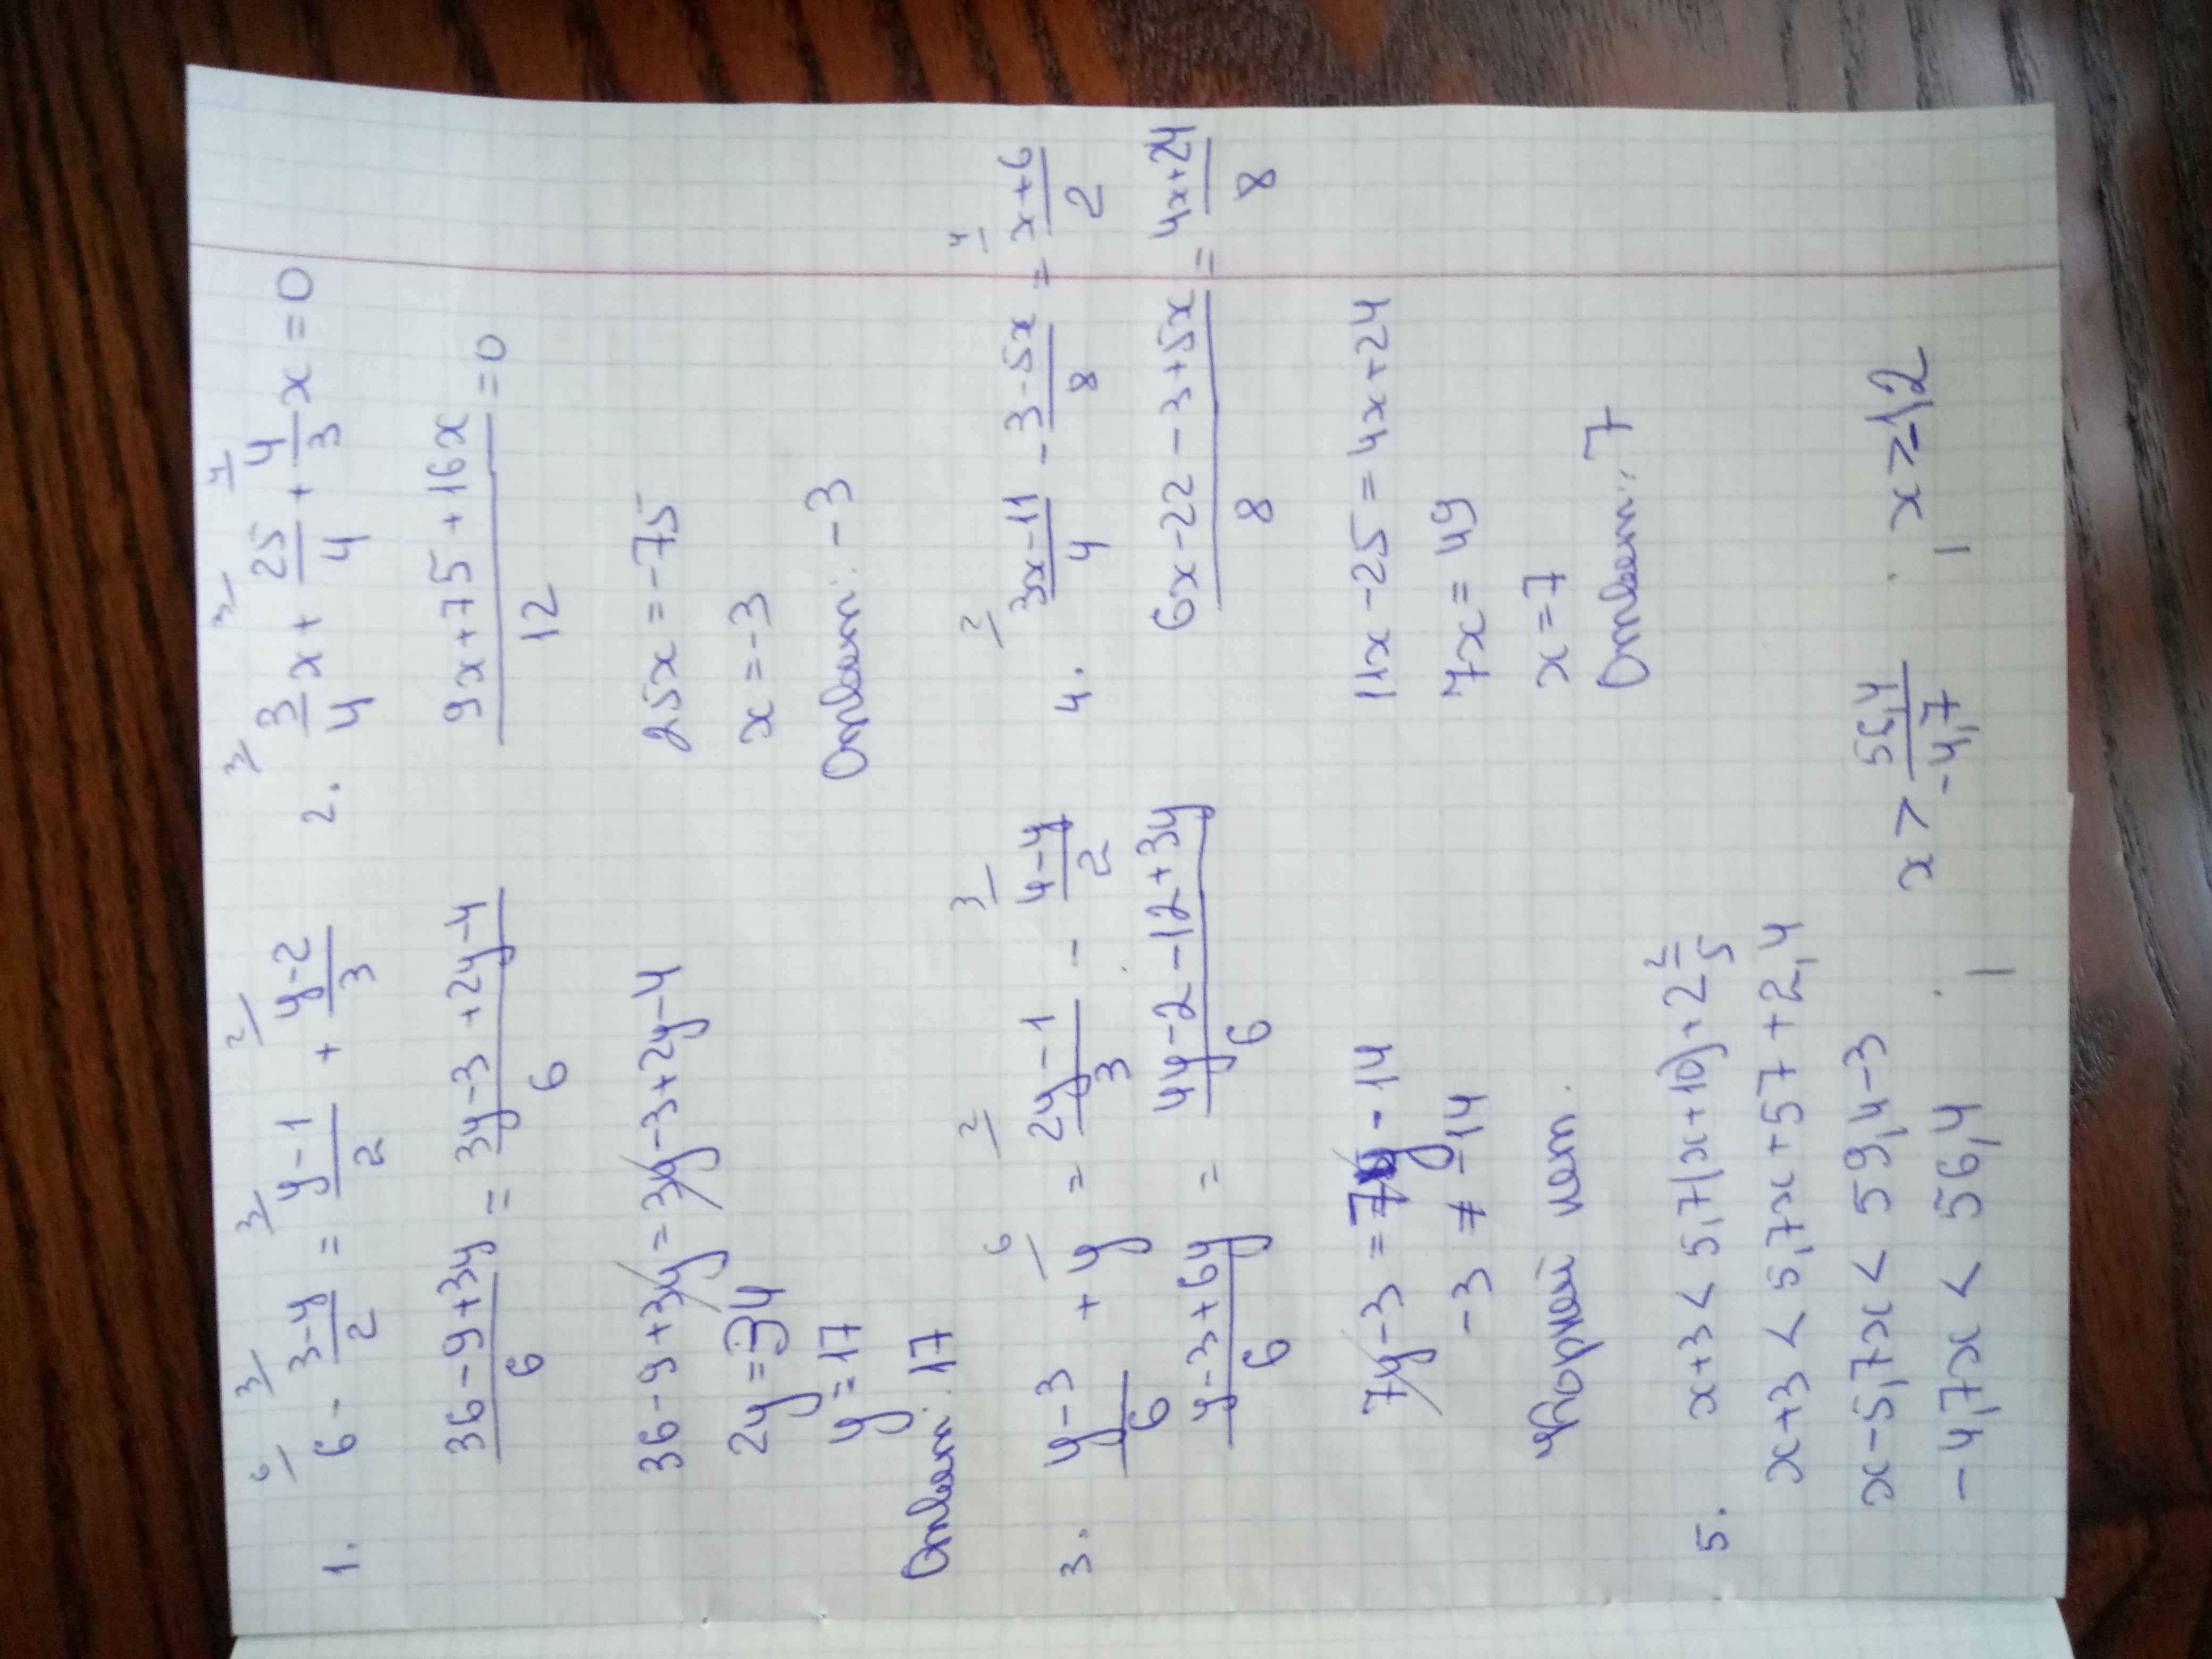 1. 6 - (3-y)/2 = (y-1)/2 + (y-2)/3
(36-9+3y)/6 = (3y-3+2y-4)/6
36-9+3y = 3y-3+2y-4
2y = 34
y = 17
Ответ: 17
2. 3/4 x + 25/4 + 4/3 x = 0
(9x+75+16x)/12 = 0
25x = -75
x = -3
Ответ: -3
3. (y-3)/6 + y = (2y-1)/3 - (4-y)/2
(y-3+6y)/6 = (4y-2-12+3y)/6
7y-3 = 7y-14
-3 ≠ -14
Корней нет.
4. (3x-11)/4 - (3-5x)/8 = (x+6)/2
(6x-22-3+5x)/8 = (4x+24)/8
11x-25 = 4x+24
7x = 49
x = 7
Ответ: 7
5. x+3 < 5,7(x+10)+2 2/5
x+3 < 5,7x+57+2,4
x-5,7x < 59,4-3
-4,7x < 56,4 , x > 56,4/-4,7 , x > -12